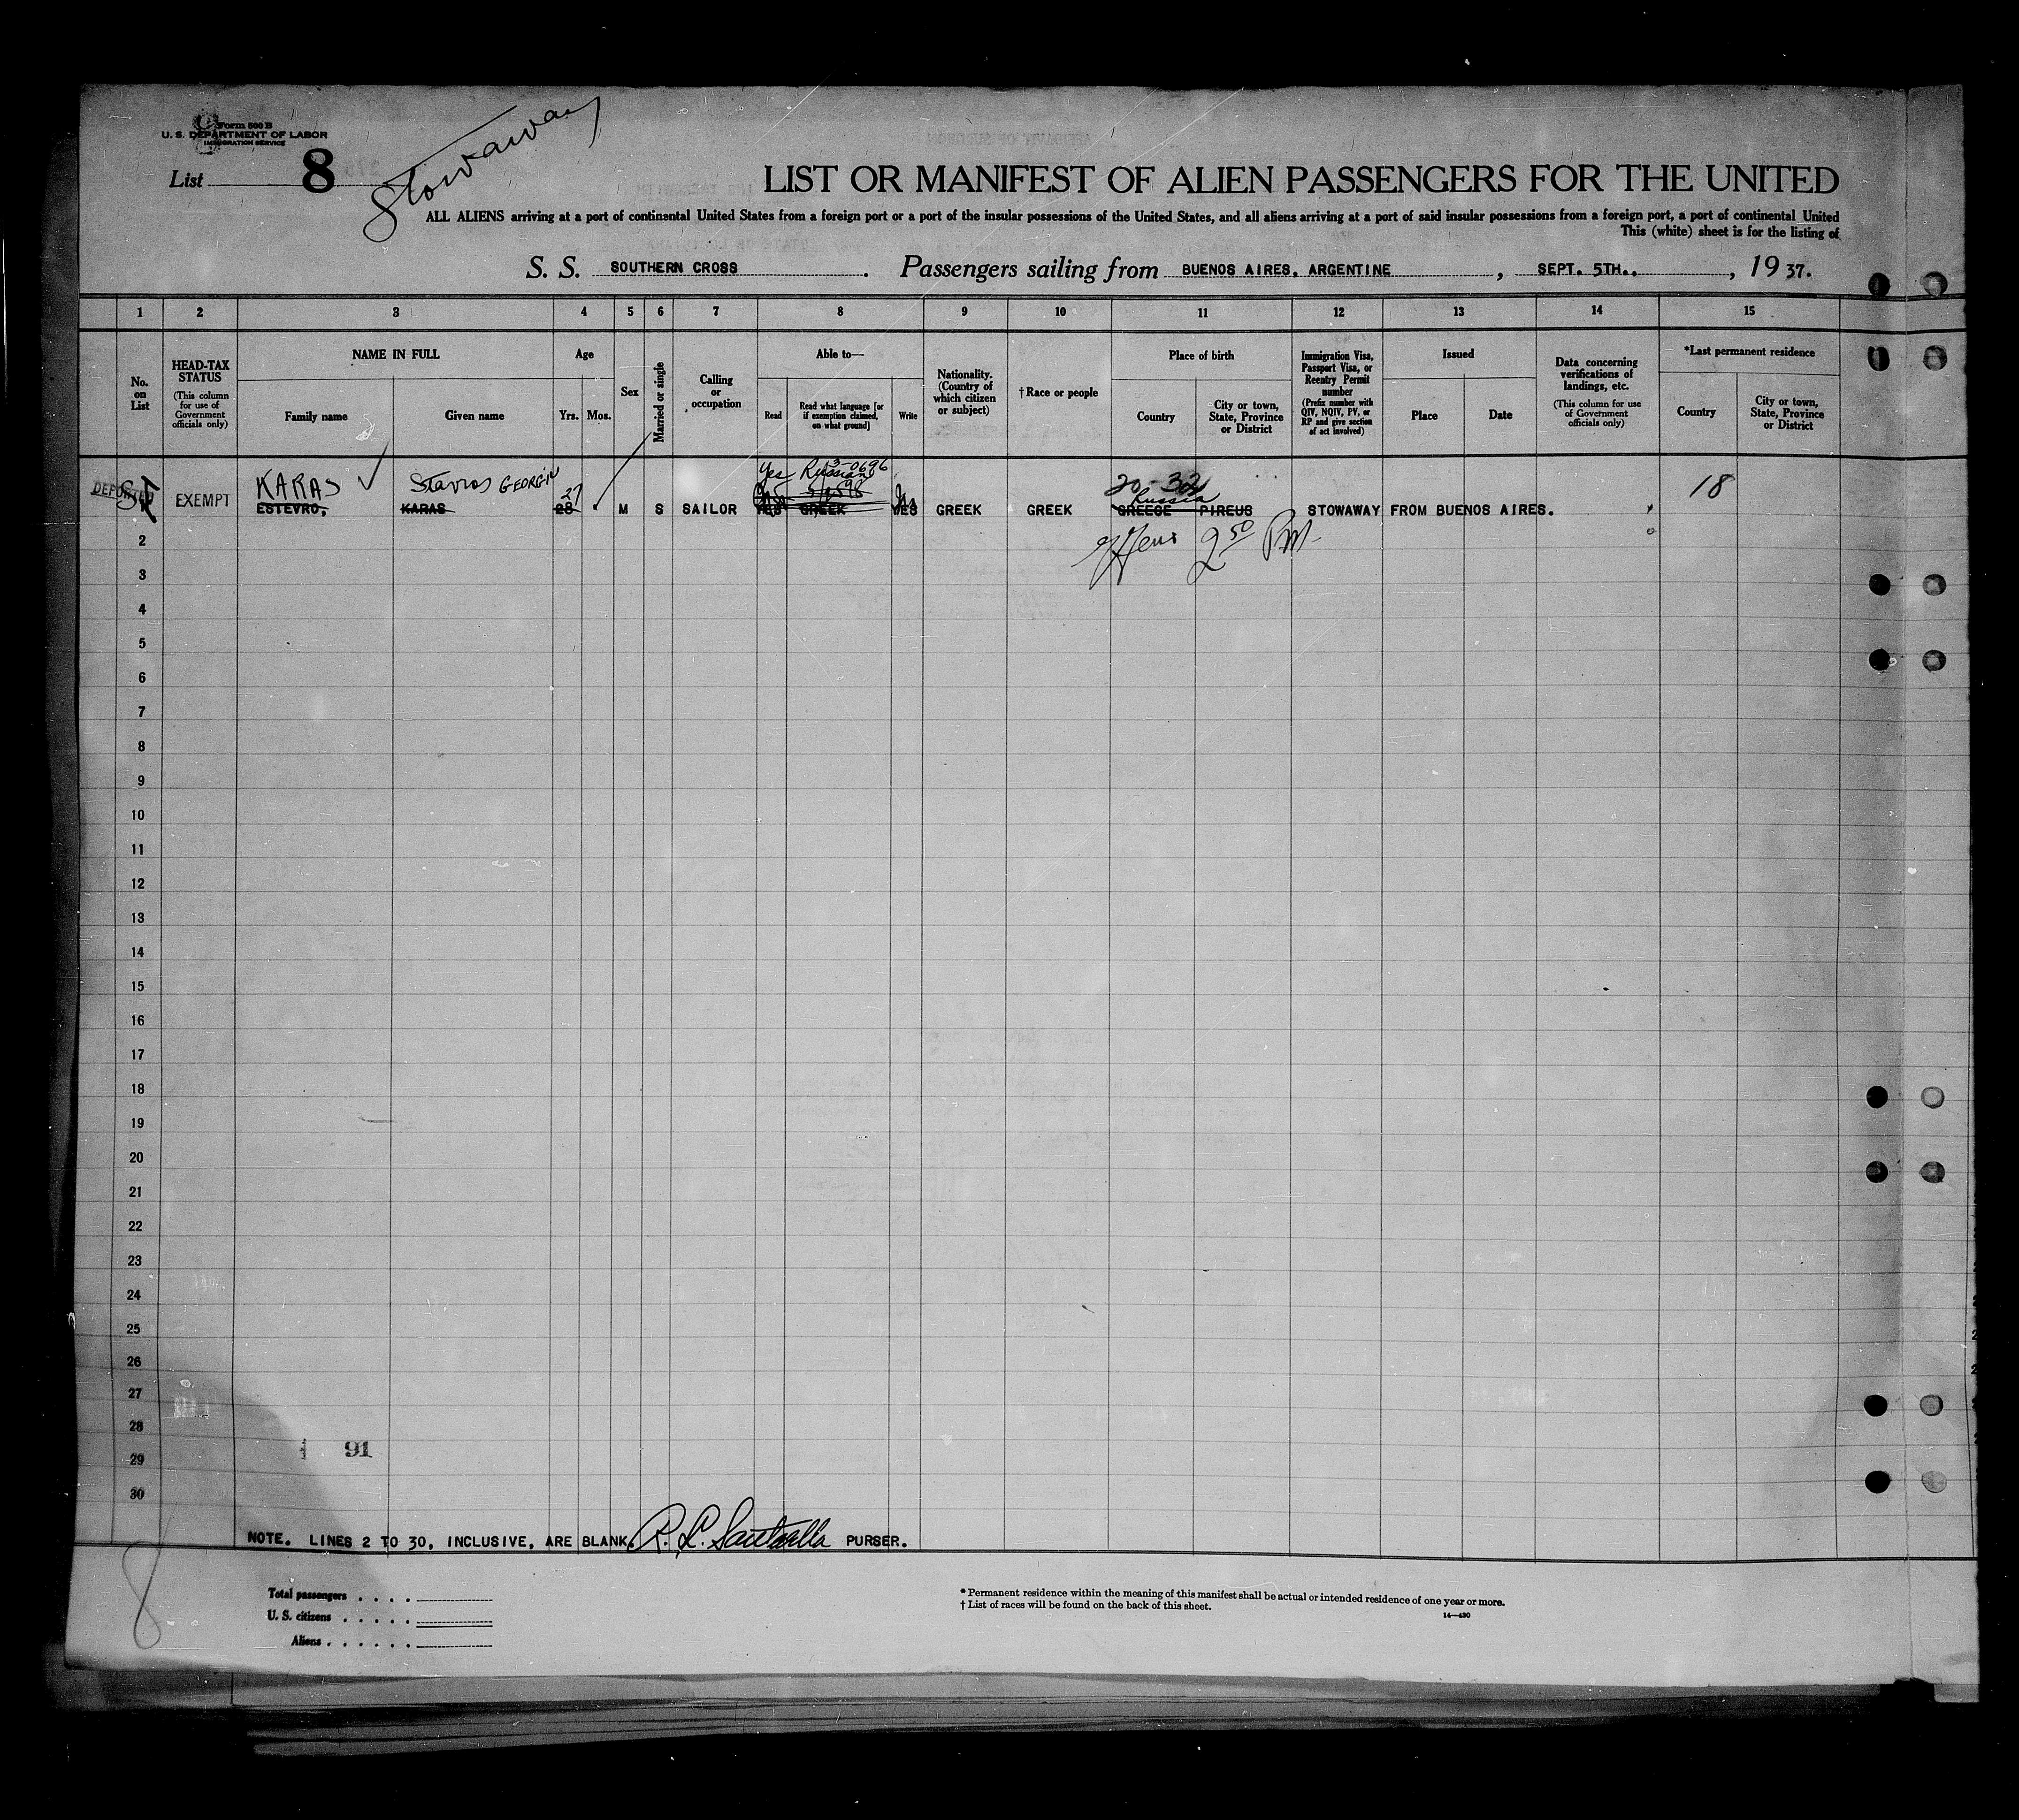 Form 500 B
U. S. DEPARTMENT OF LABOR
IMMIGRATION SERVICE
List 8
Stowaway
LIST OR MANIFEST OF ALIEN PASSENGERS FOR THE UNITED
ALL ALIENS arriving at a port of continental United States from a foreign port or a port of the insular possessions of the United States, and all aliens arriving at a port of said insular possessions from a foreign port, a port of continental United
This (white) sheet is for the listing of
S. S. SOUTHERN CROSS. Passengers sailing from BUENOS AIRES, ARGENTINE, SEPT. 5TH., , 1937.
1 2 3 4 5 6 7 8 9 10 11 12 13 14 15
No. on List
HEAD-TAX STATUS
(This column for use of Government officials only)
NAME IN FULL
Family name
Given name
Age
Yrs.
Mos.
Sex
Married or single
Calling or occupation
Able to—
Read
Read what language [or if exemption claimed, on what ground]
Write
Nationality. (Country of which citizen or subject)
† Race or people
Place of birth
Country
City or town, State, Province or District
Immigration Visa, Passport Visa, or Reentry Permit number
(Prefix number with QIV, NQIV, PV, or RP and give section of act involved)
Issued
Place
Date
Data concerning verifications of landings, etc.
(This column for use of Government officials only)
*Last permanent residence
Country
City or town, State, Province or District
3-0696
Yes Russian
KARAS Stavros GEORGIU 27 20-32 18
DEPORTED
Russia
EXEMPT ESTEVRO, KARAS 28 M S SAILOR YES GREEK YES GREEK GREEK GREECE PIREUS STOWAWAY FROM BUENOS AIRES.
2 50 PM
2
3
4
5
6
7
8
9
10
11
12
13
14
15
16
17
18
19
20
21
22
23
24
25
26
27
28
91
29
30
NOTE. LINES 2 TO 30, INCLUSIVE, ARE BLANK. PURSER.
8
Total passengers . . . .
U. S. citizens . . . . .
Aliens . . . . . .
* Permanent residence within the meaning of this manifest shall be actual or intended residence of one year or more.
† List of races will be found on the back of this sheet.
14—430